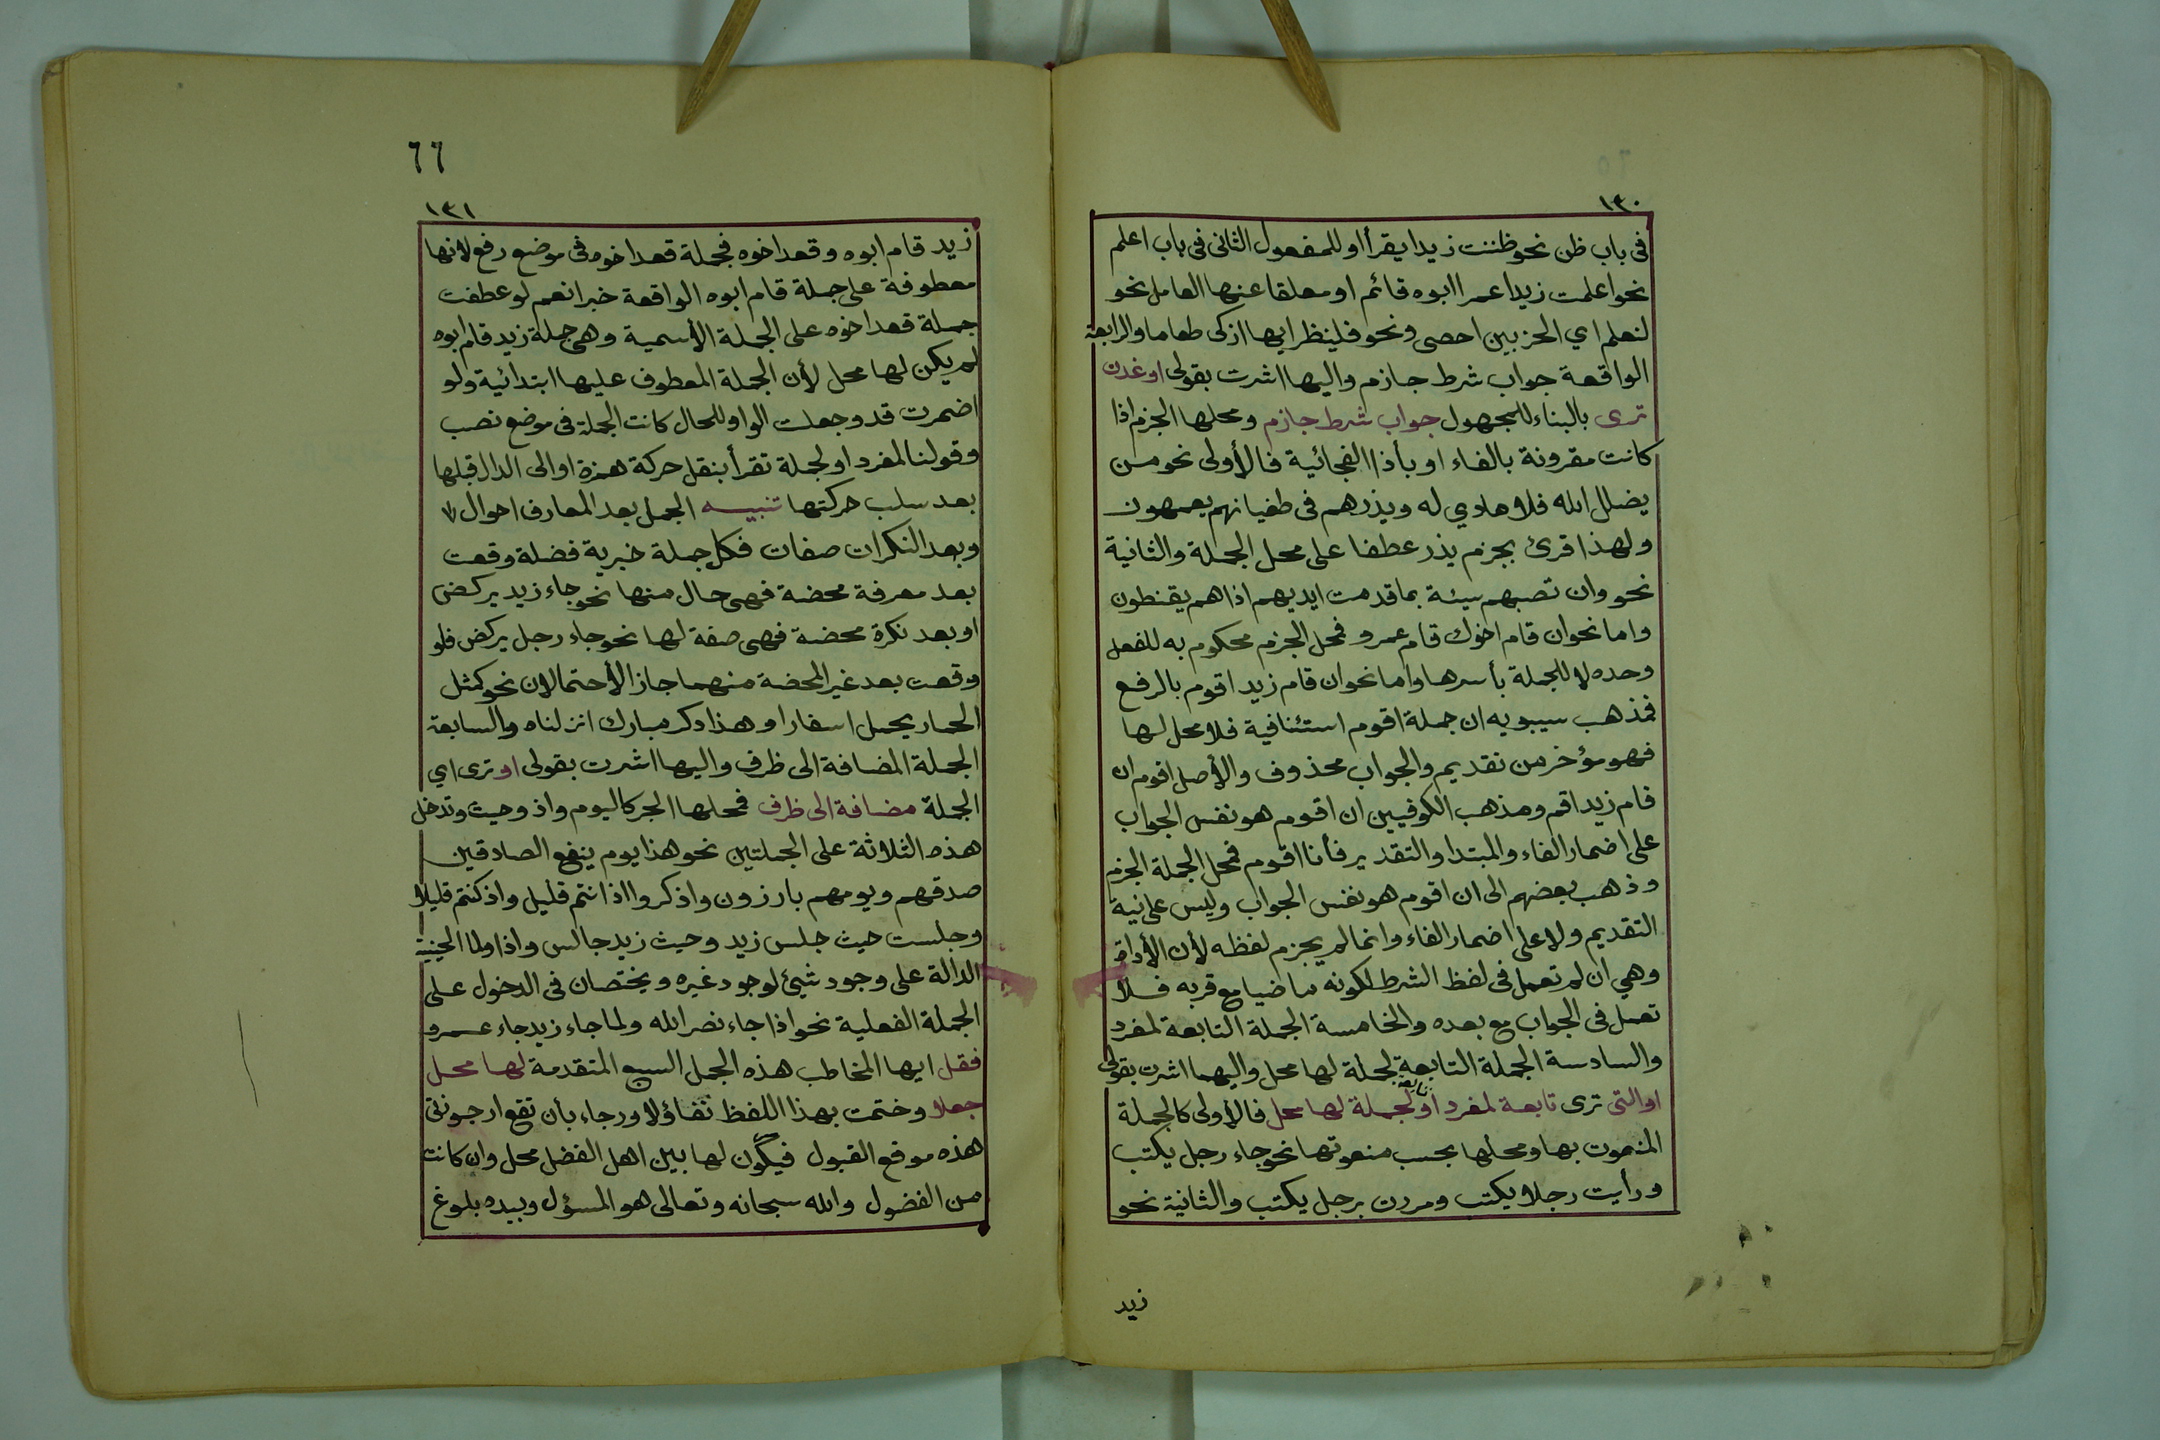 ١٣٠
فى باب ظن نحو ظننت زيدا يقرأ او للمفعول الثانى فى باب اعلم
نحو اعلمت زيدا عمرا ابوه قائم او معلقا عنها العامل نحو
لنعلم اي الحزبين احصى ونحو فلينظر ايها ازكى طعاما والرابعة
الواقعة جواب شرط جازم واليها اشرت بقولى او غدت
ترى بالبناء للمجهول جواب شرط جازم ومحلها الجزم اذا
كانت مقرونة بالفاء او بأذا الفجائية فالأولى نحو من
يضلل الله فلا هادي له ويذرهم فى طغيانهم يعمهون
ولهذا قرئ بجزم يذر عطفا على محل الجملة والثانية
نحو وان تصبهم سيئة بما قدمت ايديهم اذا هم يقنطون
واما نحو ان قام اخوك قام عمرو فمحل الجزم محكوم به للفعل
وحده لا للجملة بأسرها واما نحو ان قام زيد اقوم بالرفع
فمذهب سيبويه ان جملة اقوم استئنافية فلا محل لها
فهو مؤخر من تقديم والجواب محذوف والأصل اقوم ان
قام زيد اقم ومذهب الكوفيين ان اقوم هو نفس الجواب
على اضمار الفاء والمبتدا والتقدير فأنا اقوم فمحل الجملة الجزم
وذهب بعضهم الى ان اقوم هو نفس الجواب وليس على نية
التقديم ولا على اضمار الفاء وانما لم يجزم لفظه لأن الأداة
وهي ان لم تعمل فى لفظ الشرط لكونه ماضيا مع قربه فلا
تعمل فى الجواب مع بعده والخامسة الجملة التابعة لمفرد
والسادسة الجملة التابعة لجملة لها محل واليهما اشرت بقولى
او التى ترى تابعة لمفرد او تابعة لجملة لها محل فالأولى كالجملة
المنعوت بها ومحلها بحسب منعوتها نحو جاء رجل يكتب
ورأيت رجلا يكتب ومررت برجل يكتب والثانية نحو
زيد
٦٦
١٣١
زيد قام ابوه وقعد اخوه فجملة قعد اخوه فى موضع رفع لانها
معطوفة على جملة قام ابوه الواقعة خبرا نعم لو عطفت
جملة قعد اخوه على الجملة الأسمية وهى جملة زيد قام ابوه
لم يكن لها محل لأن الجملة المعطوف عليها ابتدائية ولو
اضمرت قد وجعلت الواو للحال كانت الجملة فى موضع نصب
وقولنا لمفرد او لجملة تقرأ بنقل حركة همزة او الى الدال قبلها
بعد سلب حركتها تنبيه الجمل بعد المعارف احوال
وبعد النكرات صفات فكل جملة خبرية فضلة وقعت
بعد معرفة محضة فهى حال منها نحو جاء زيد يركض
او بعد نكرة محضة فهى صفة لها نحو جاء رجل يركض فلو
وقعت بعد غير المحضة منهما جاز الأحتمالان نحو كمثل
الحمار يحمل اسفارا وهذا ذكر مبارك انزلناه والسابعة
الجملة المضافة الى ظرف واليها اشرت بقولى او ترى اي
الجملة مضافة الى ظرف فمحلها الجر كاليوم واذ وحيث وتدخل
هذه الثلاثة على الجملتين نحو هذا يوم ينفع الصادقين
صدقهم ويومهم بارزون واذكروا اذ انتم قليل واذ كنتم قليلا
وجلست حيث جلس زيد وحيث زيد جالس واذا ولما الحينية
الدالة على وجود شيئ لوجود غيره ويختصان فى الدخول على
الجملة الفعلية نحو اذا جاء نصر الله ولما جاء زيد جاء عمرو
فقل ايها المخاطب هذه الجمل السبع المتقدمة لها محل
جعلا وختمت بهذا اللفظ تفاؤلا ورجاء بأن تقع ارجوزتى
هذه موقع القبول فيكون لها بين اهل الفضل محل وان كانت
من الفضول والله سبحانه وتعالى هو المسؤل وبيده بلوغ